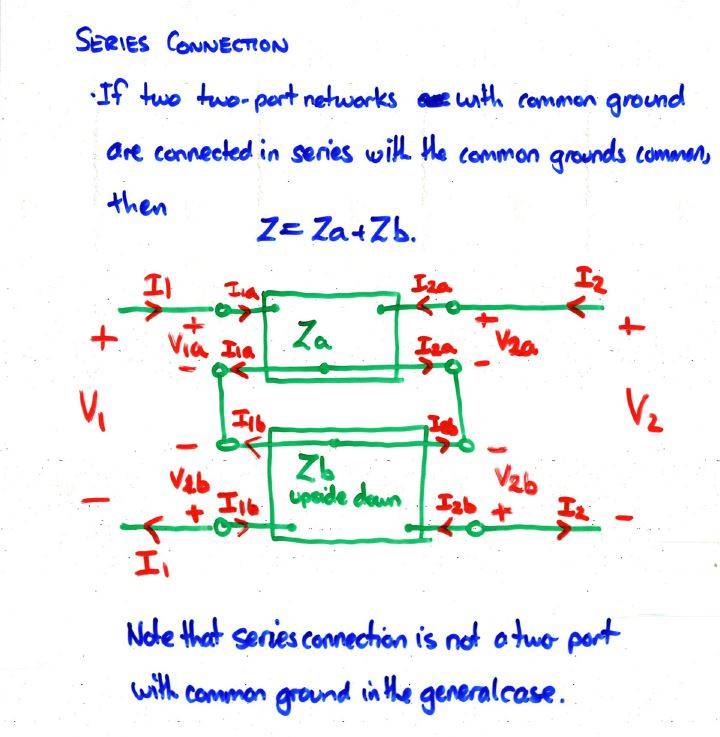 SERIES CONNECTION
·If two two-port networks with common ground
are connected in series with the common grounds common,
then
Z = Za + Zb.
I1 I1a I2a I2
+ + Za + +
V1a I1a I2a V2a
- -
V1 V2
I1b I2b
- -
Zb
V2b upside down V2b
- + I1b I2b + I2 -
I1
Note that series connection is not a two port
with common ground in the general case.